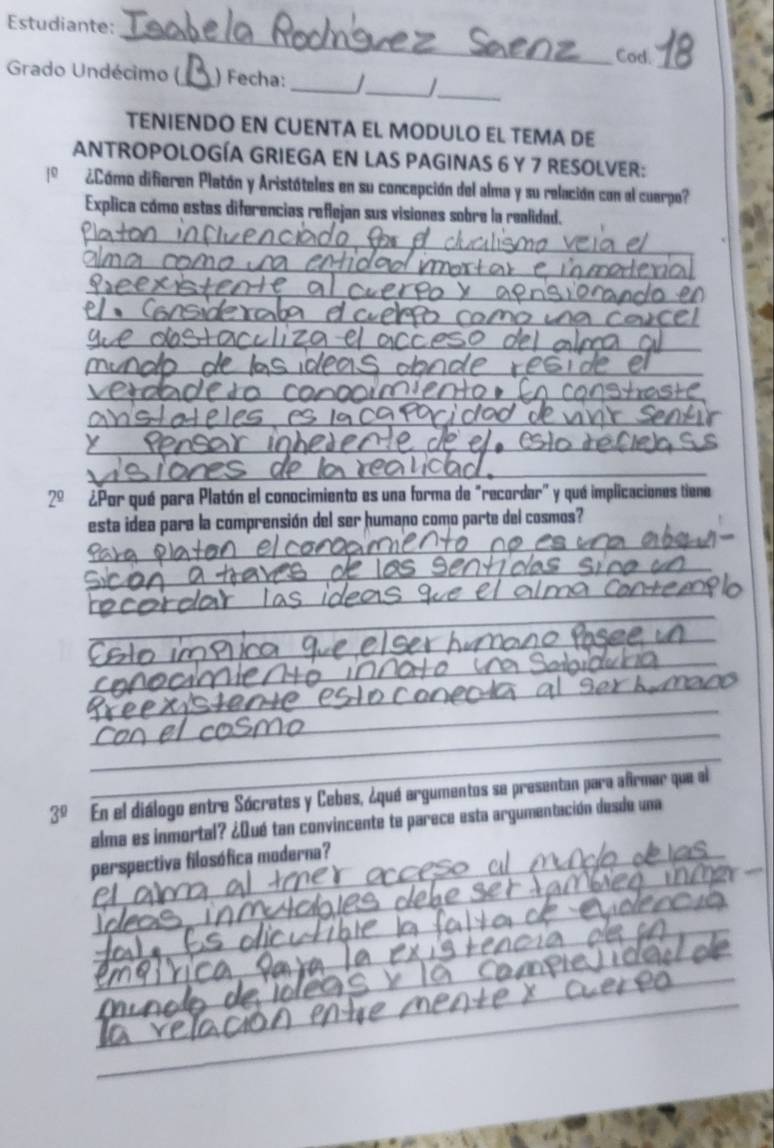 Estudiante: Isabela Rodríguez Saenz Cod. 18
Grado Undécimo (B) Fecha: ____/____/____
TENIENDO EN CUENTA EL MODULO EL TEMA DE
ANTROPOLOGÍA GRIEGA EN LAS PAGINAS 6 Y 7 RESOLVER:
1º ¿Cómo difieren Platón y Aristóteles en su concepción del alma y su relación con el cuerpo?
Explica cómo estas diferencias reflejan sus visiones sobre la realidad.
Platon influenciado por el dualismo veia el
alma como una entidad mortar e inmaterial
preexistente al cuerpo y apnsionando en
el. Consideraba el cuerpo como una carcel
que obstaculiza el acceso del alma al
mundo de las ideas donde reside el
verdadero conocimiento. En constraste
aristoteles es la capacidad de vivir sentir
y pensar inherente de el. esto refleja sus
visiones de la realidad.
2º ¿Por qué para Platón el conocimiento es una forma de "recordar" y qué implicaciones tiene
esta idea para la comprensión del ser humano como parte del cosmos?
para platon el conocimiento no es una
sicon a traves de los sentidos sino un
recordar las ideas que el alma contemplo
Esto implica que el ser humano posee un
conocimiento innato una sabiduria
preexistente esto conecta al ser humano
con el cosmo
3º En el diálogo entre Sócrates y Cebes, ¿qué argumentos se presentan para afirmar que el
alma es inmortal? ¿Qué tan convincente te parece esta argumentación desde una
perspectiva filosófica moderna?
el alma al tener acceso al mundo de las
ideas inmutables debe ser tambien inmor-
tal. Es dicutible la falta de evidencia
empirica para la existencia de un
mundo de ideas y la complejidad de
la relación entre mente y cuerpo